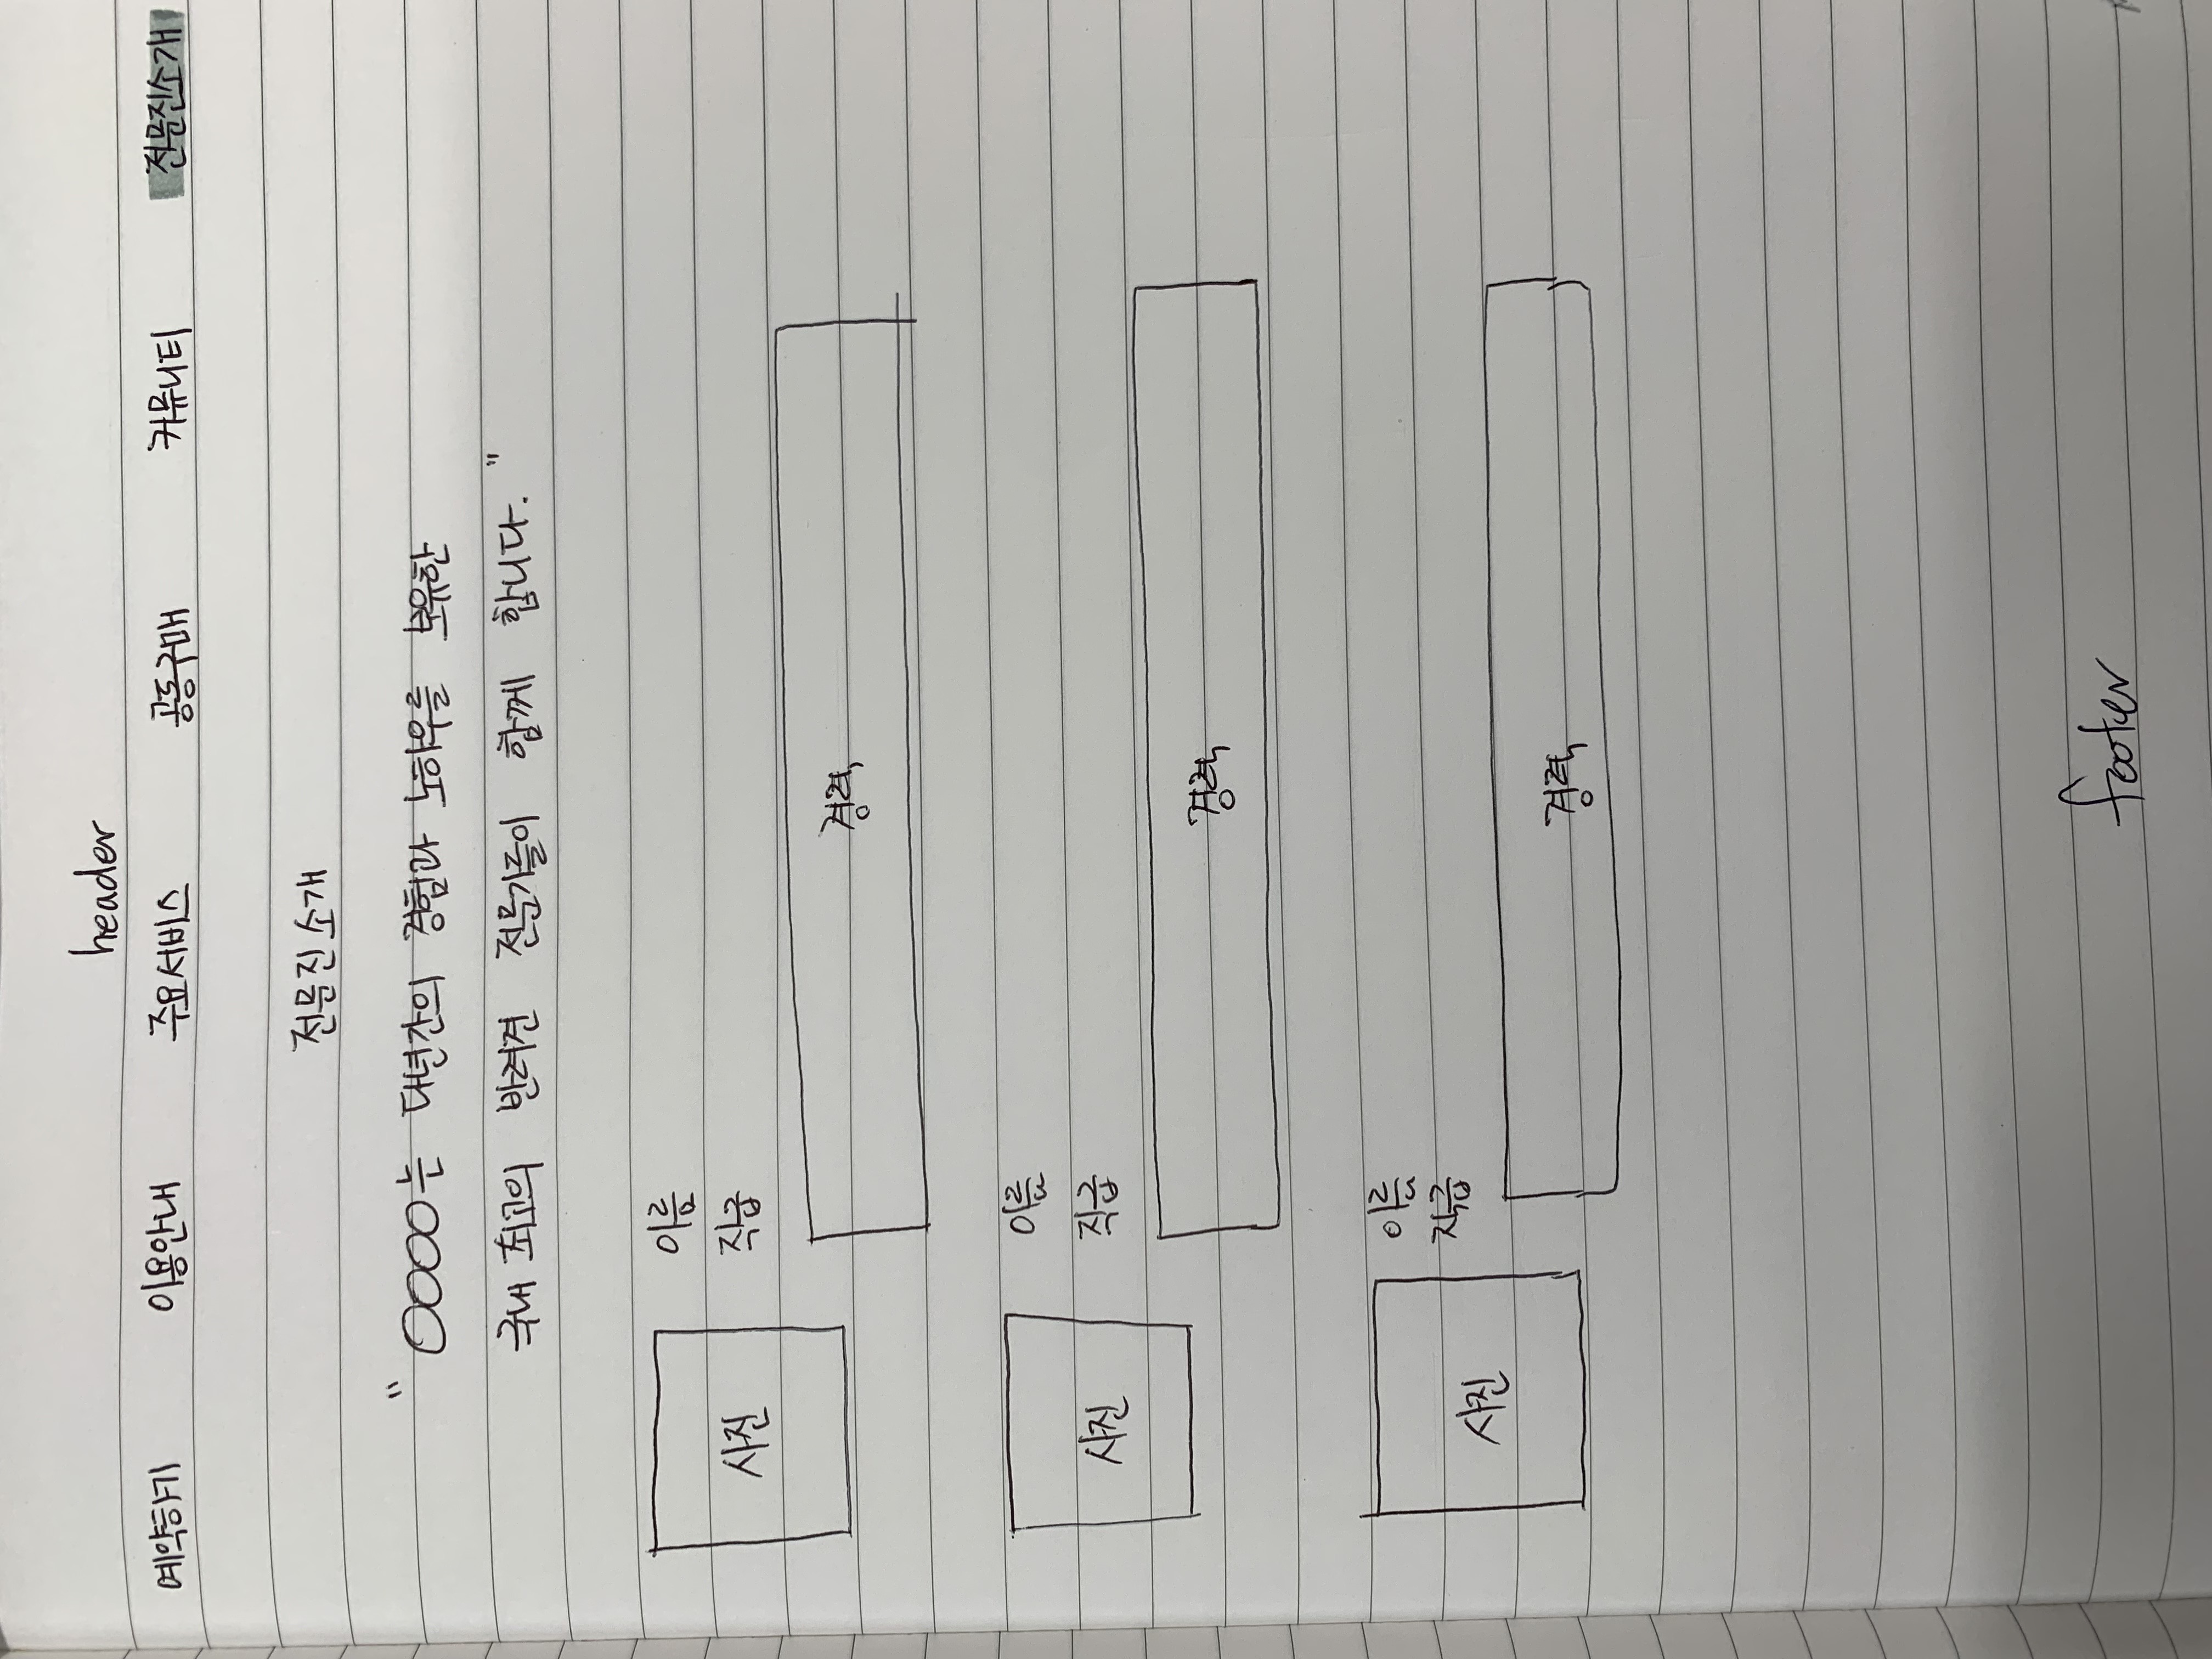 header
예약하기 이용안내 주요서비스 공동구매 커뮤니티 전문진소개
전문진 소개
" OOOO는 다년간의 경험과 노하우를 보유한
국내 최고의 반려견 전문가들이 함께 합니다. "
이름
사진 직급
경력
이름
사진 직급
경력
이름
직급
사진
경력
footer